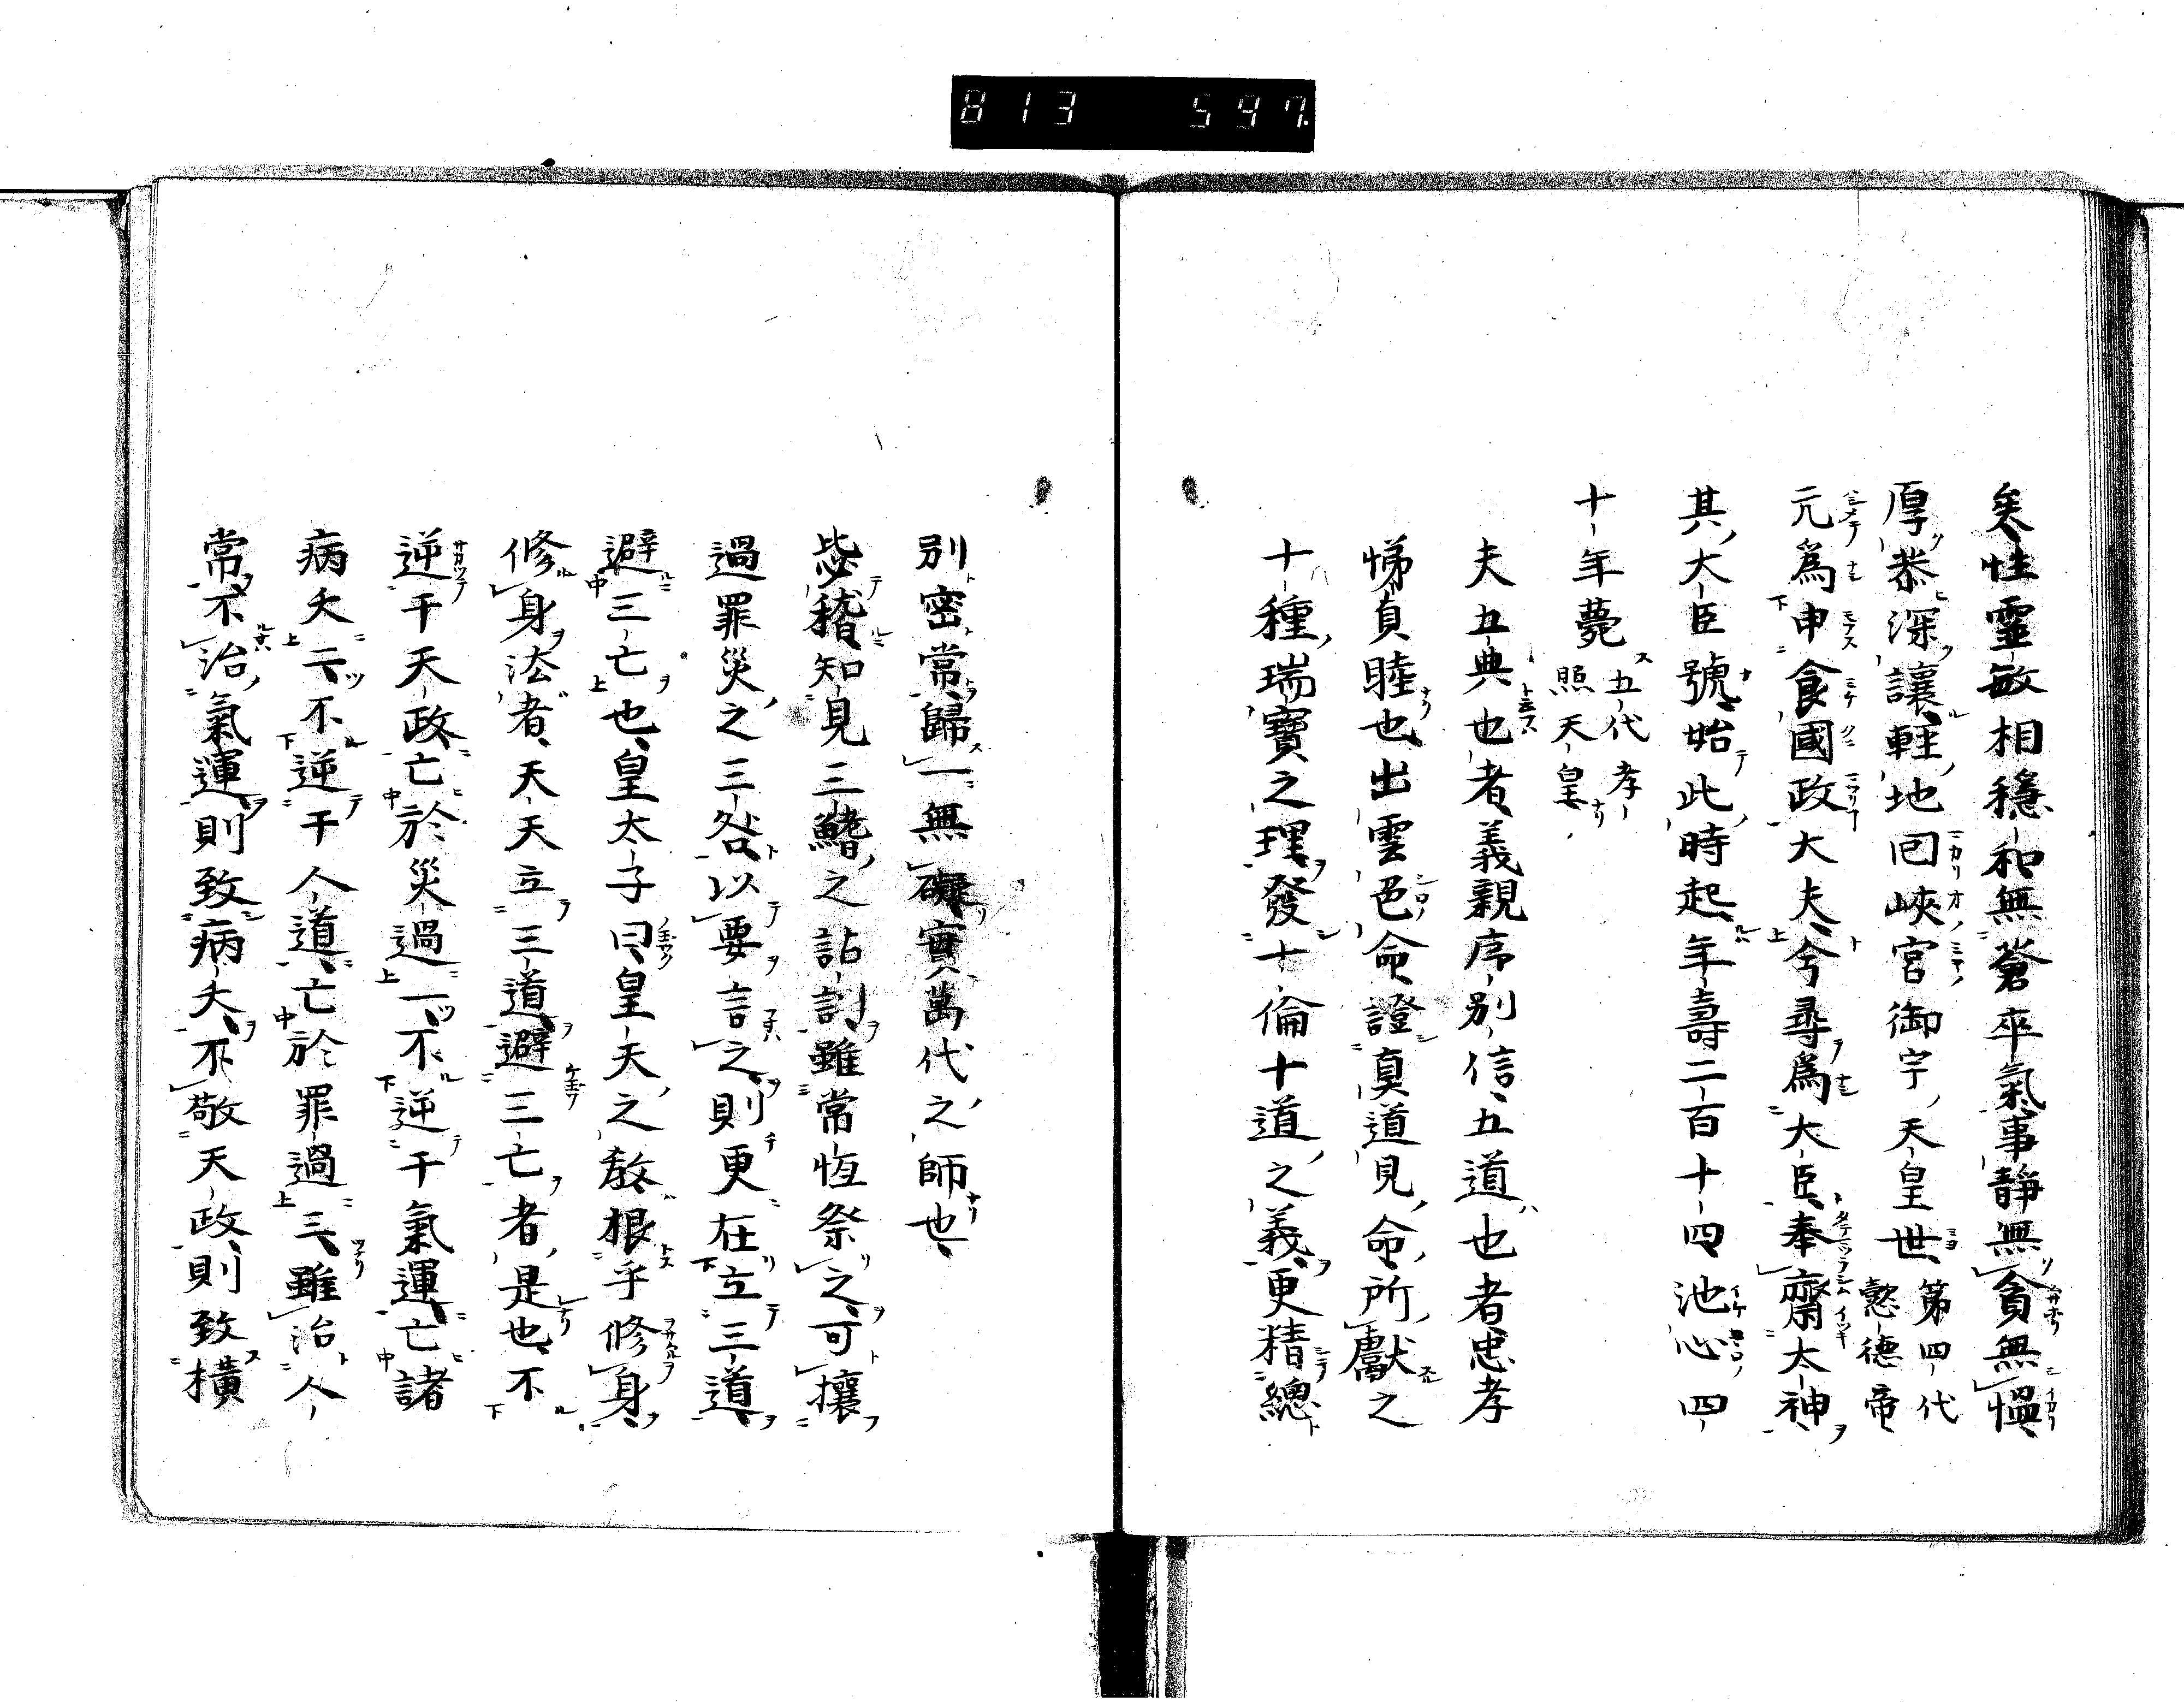 813 597
矣性靈敏相穩和無蒼卒氣事靜無貪無慍
厚恭深讓輕地回峽宮御宇天皇世 第四代
懿德帝
元爲申食國政大夫今尋爲大臣奉齋太神
其大臣號始此時起年壽二百十四池心四
十年薨 五代孝
照天皇
夫五典也者義親序别信五道也者忠孝
悌貞睦也出雲色命證真道見命所獻之
十種瑞寶之理發十倫十道之義更精總
别密常歸一無礙實萬代之師也
毖稽知見三鰭之詁討雖常恆祭之可攘
過罪災之三咎以要言之則更在立三道
避三亡也皇太子曰皇天之教根乎修身
修身法者天天立三道避三亡者是也不
逆干天政亡於災過一不逆干氣運亡諸
病夭二不逆干人道亡於罪過三雖治人
常不治氣運則致病夭不敬天政則致橫